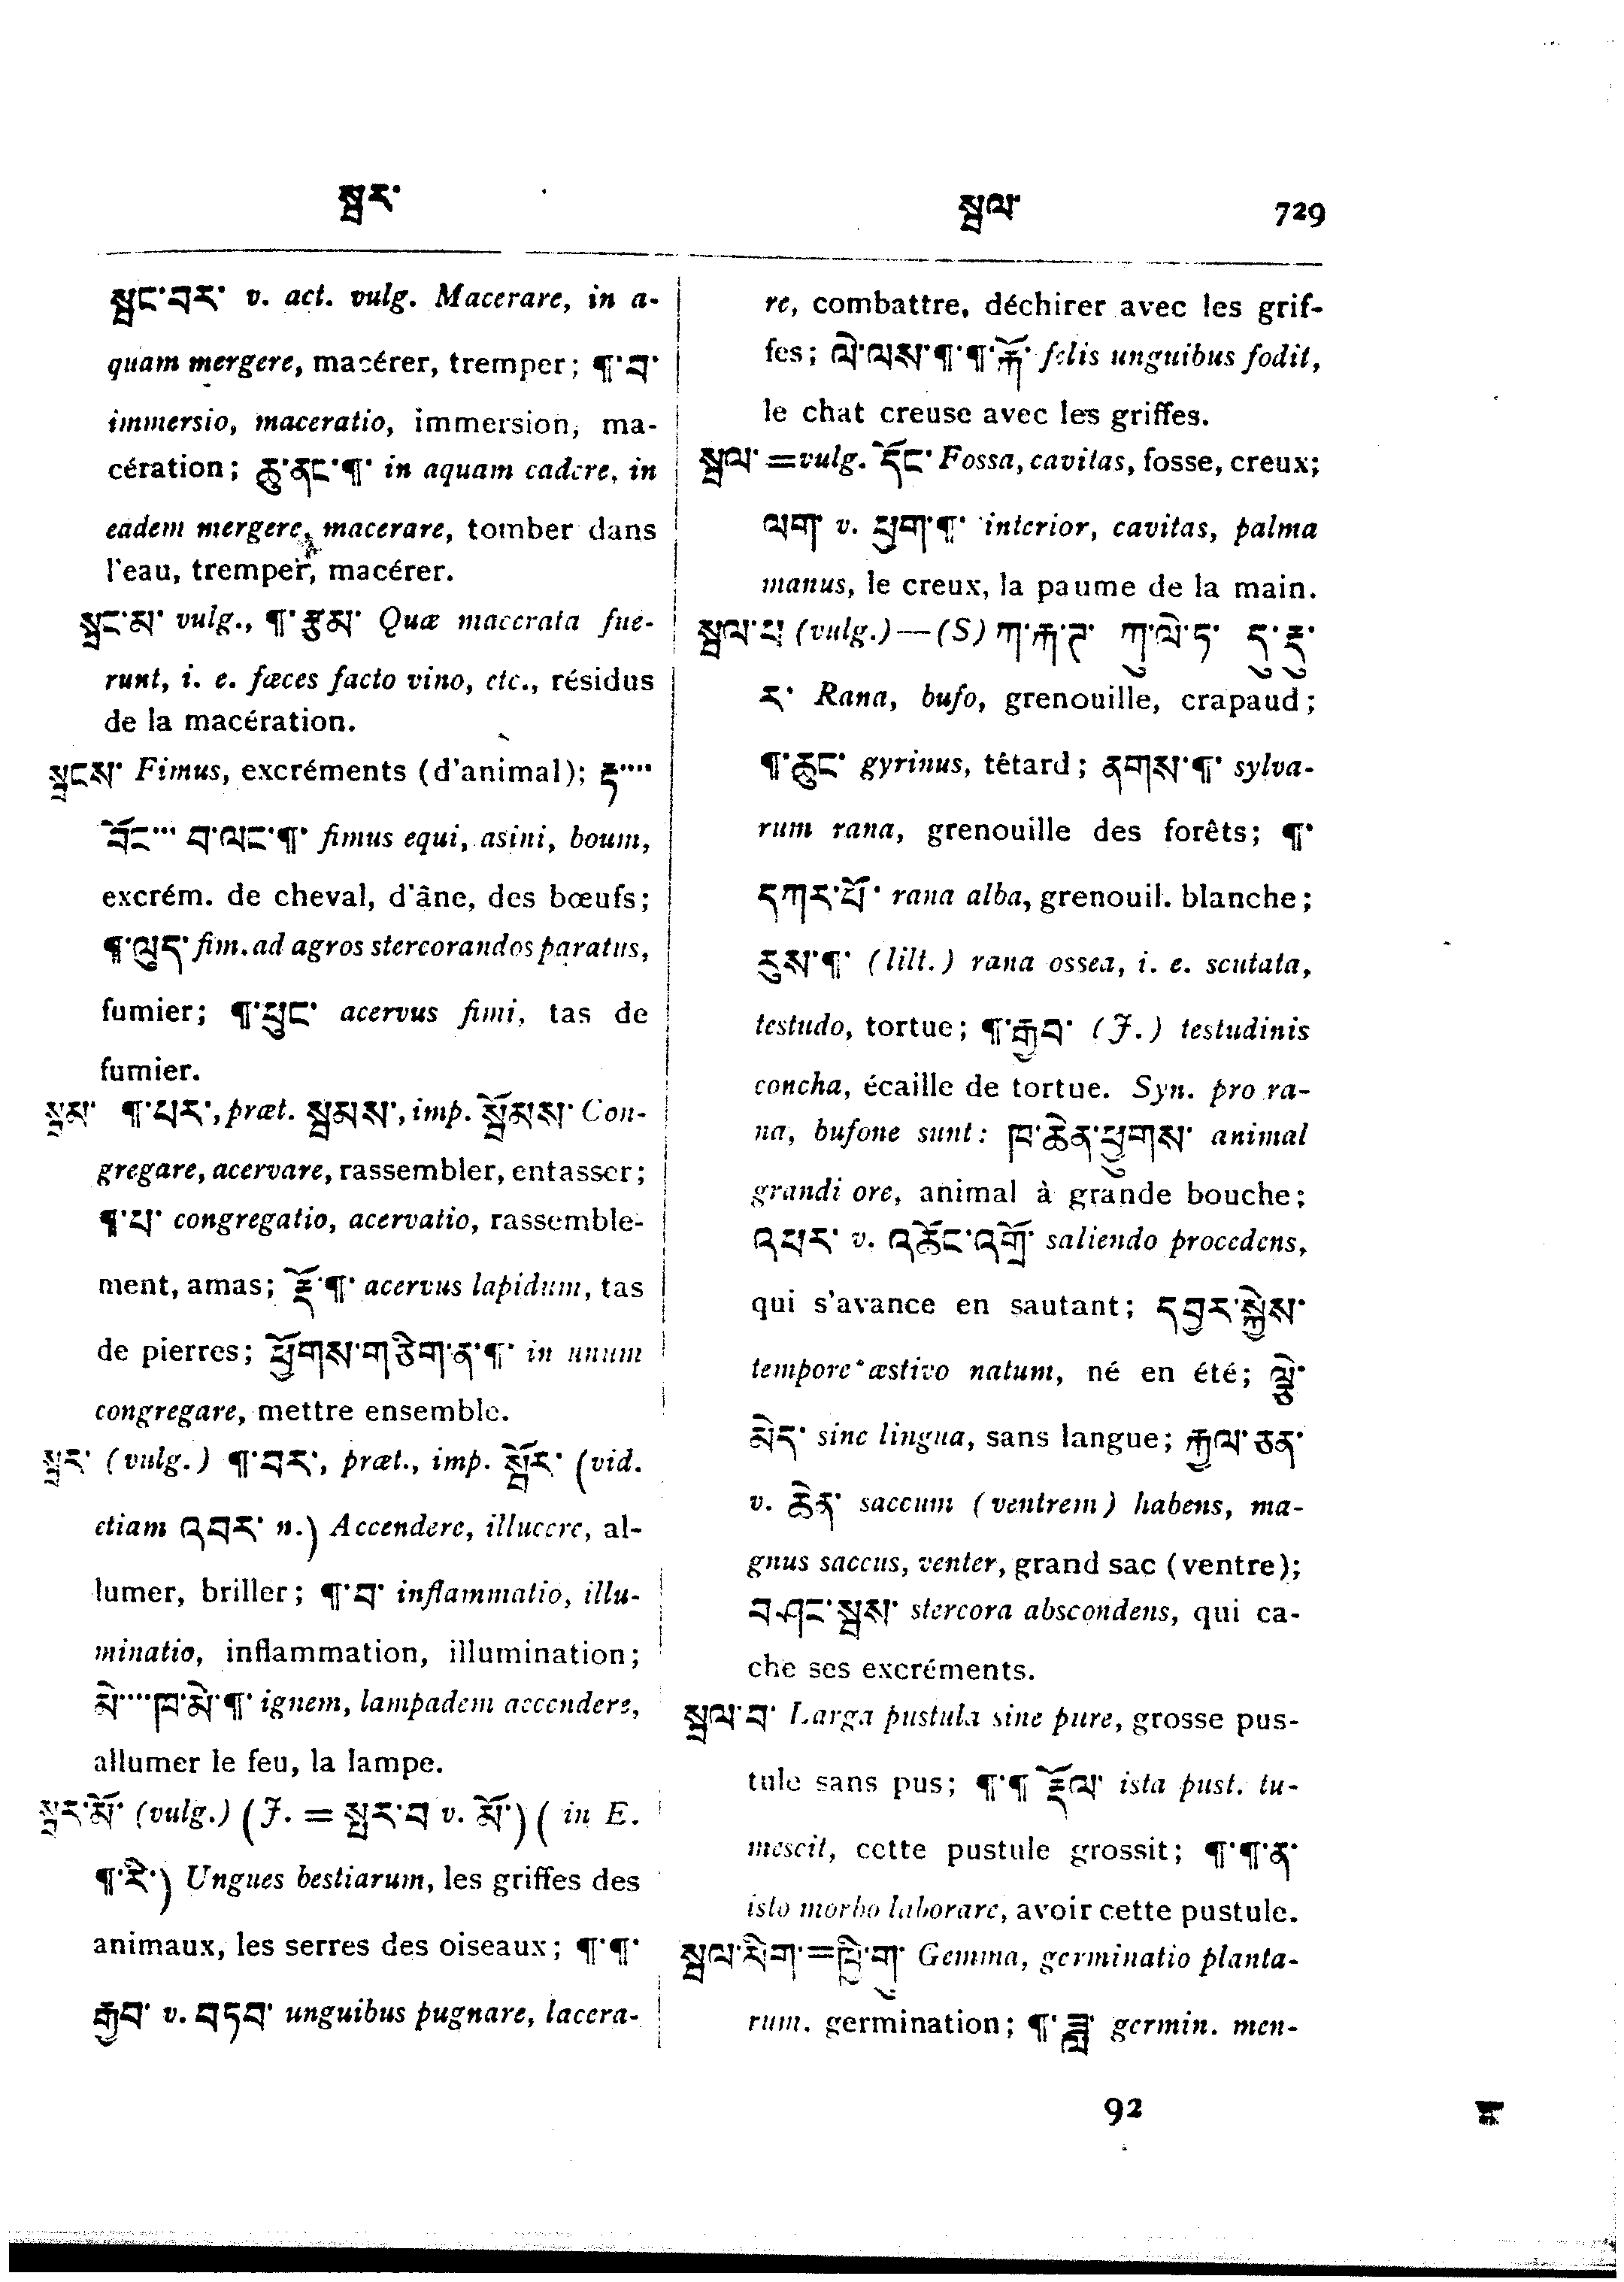 སྦར་
སྦལ་ 729
སྦང་བར་ v. act. vulg. Macerare, in a-
quam mergere, macérer, tremper; ¶་བ་
immersio, maceratio, immersion, ma-
cération; ཆུ་ནང་¶་ in aquam cadere, in
eadem mergere, macerare, tomber dans
l'eau, tremper, macérer.
སྦང་མ་ vulg., ¶་རྫས་ Quæ macerata fue-
runt, i. e. fæces facto vino, etc., résidus
de la macération.
སྦངས་ Fimus, excréments (d'animal); རྟ་....
བོང་... བ་ལང་¶་ fimus equi, asini, boum,
excrém. de cheval, d'âne, des bœufs;
¶་ལུད་ fim. ad agros stercorandos paratus,
fumier; ¶་ཕུང་ acervus fimi, tas de
fumier.
སྦམ་ ¶་པར་, præt. སྦམས་, imp. སྦོམས་ Con-
gregare, acervare, rassembler, entasser;
¶་པ་ congregatio, acervatio, rassemble-
ment, amas; རྡོ་¶་ acervus lapidum, tas
de pierres; ཕྱོགས་གཅིག་ན་¶་ in unum
congregare, mettre ensemble.
སྦར་ (vulg.) ¶་བར་, præt., imp. སྦོར་ (vid.
etiam འབར་ n.) Accendere, illucere, al-
lumer, briller; ¶་བ་ inflammatio, illu-
minatio, inflammation, illumination;
མེ་....ཁ་མེ་¶་ ignem, lampadem accendere,
allumer le feu, la lampe.
སྦར་མོ་ (vulg.) (J. = སྤར་བ v. མོ་) (in E.
¶་རེ་) Ungues bestiarum, les griffes des
animaux, les serres des oiseaux; ¶་¶་
རྒྱབ་ v. བཏབ་ unguibus pugnare, lacera-
re, combattre, déchirer avec les grif-
fes; ལེ་ལས་¶་¶་རྐོ་ felis unguibus fodit,
le chat creuse avec les griffes.
སྦལ་ =vulg. དོང་ Fossa, cavitas, fosse, creux;
ལག་ v. ཕྱག་¶་ interior, cavitas, palma
manus, le creux, la paume de la main.
སྦལ་པ (vulg.)—(S) ཀ་རྐ་ཊ་ ཀུ་ལེ་ཏ་ དུ་རྡུ་
ར་ Rana, bufo, grenouille, crapaud;
¶་ཆུང་ gyrinus, tétard; ནགས་¶་ sylva-
rum rana, grenouille des forêts; ¶་
དཀར་པོ་ rana alba, grenouil. blanche;
རུས་¶་ (litt.) rana ossea, i. e. scutata,
testudo, tortue; ¶་རྒྱབ་ (J.) testudinis
concha, écaille de tortue. Syn. pro ra-
na, bufone sunt: ཁ་ཆེན་ཕྱུགས་ animal
grandi ore, animal à grande bouche;
འཕར་ v. འཆོང་འགྲོ་ saliendo procedens,
qui s'avance en sautant; དབྱར་སྐྱེས་
tempore æstivo natum, né en été; ལྕེ་
མེད་ sine lingua, sans langue; རྒྱལ་ཅན་
v. ཆེན་ saccum (ventrem) habens, ma-
gnus saccus, venter, grand sac (ventre);
བཤང་སྦས་ stercora abscondens, qui ca-
che ses excréments.
སྦལ་བ་ Larga pustula sine pure, grosse pus-
tule sans pus; ¶་¶ རྡོལ་ ista pust. tu-
mescit, cette pustule grossit; ¶་¶་ན་
isto morbo laborare, avoir cette pustule.
སྦལ་མིག་=ཁྲི་གུ་ Gemma, germinatio planta-
rum, germination; ¶་ཟླ་ germin. men-
92